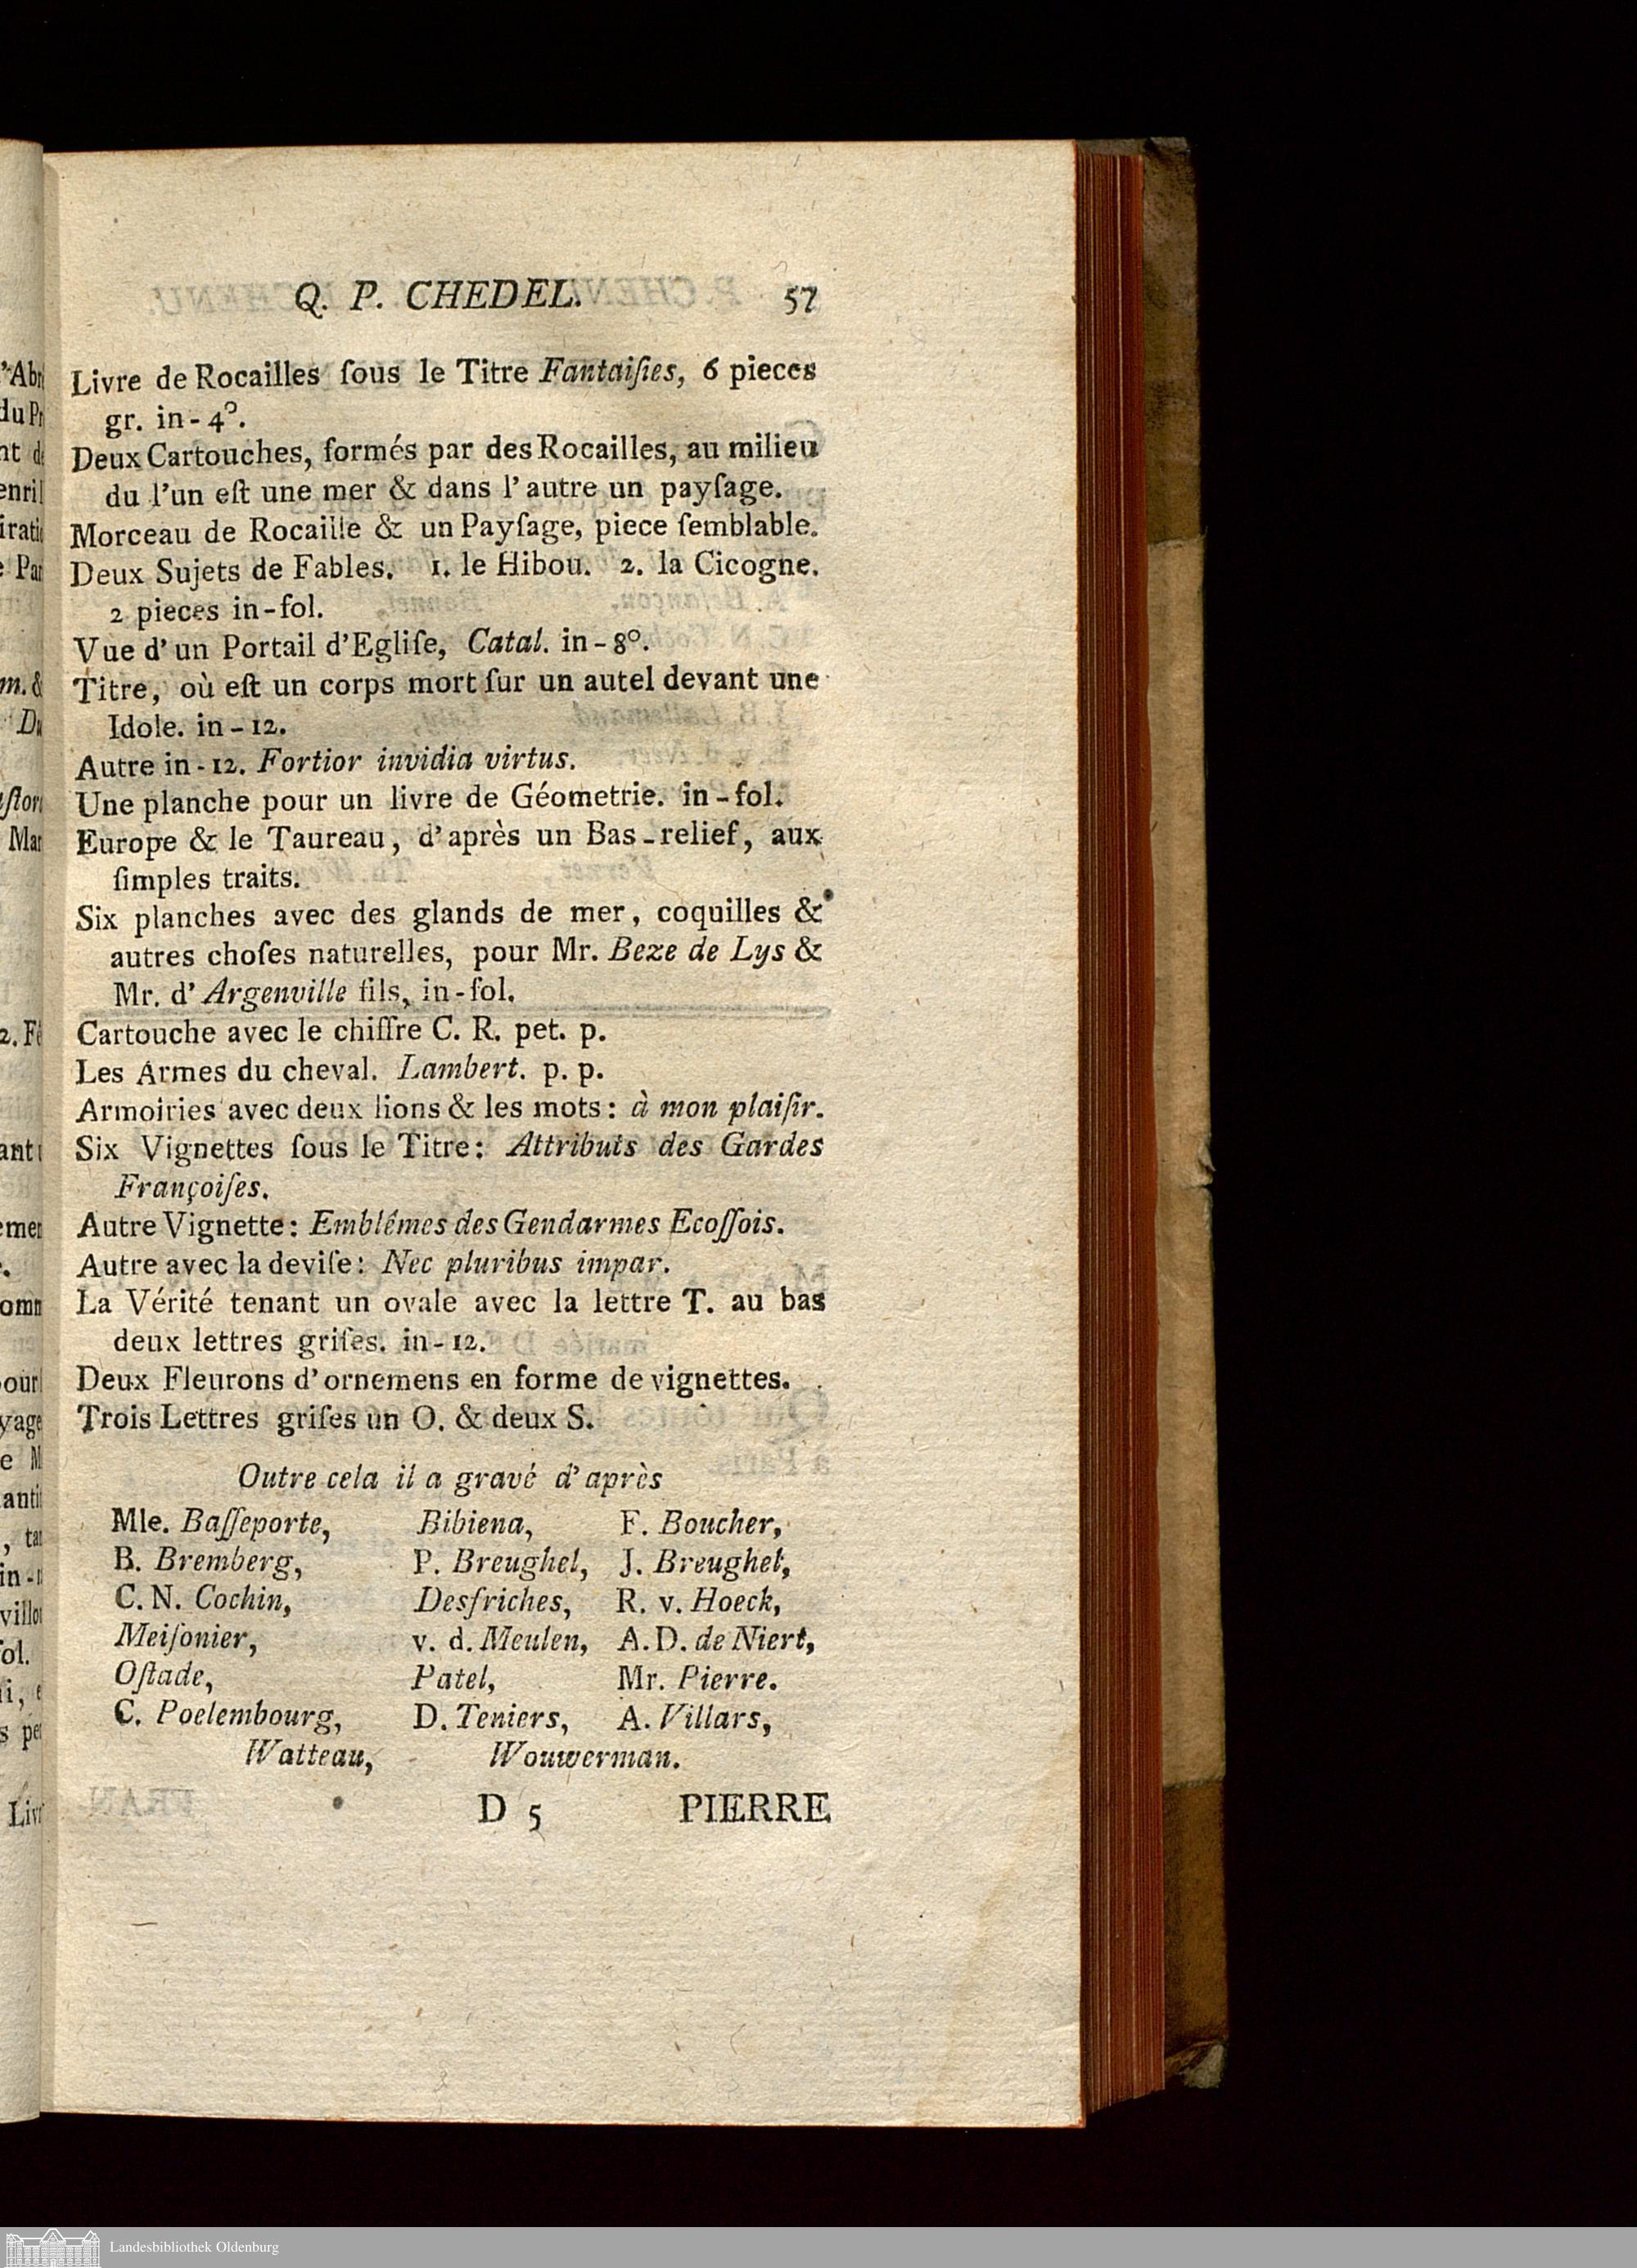 Q. P. CHEDEL. 57
Livre de Rocailles ſous le Titre Fantaiſies, 6 pieces
gr. in-4°.
Deux Cartouches, formés par des Rocailles, au milieu
du l'un eſt une mer & dans l'autre un payſage.
Morceau de Rocaille & un Payſage, piece ſemblable.
Deux Sujets de Fables. 1. le Hibou. 2. la Cicogne.
2 pieces in-fol.
Vue d'un Portail d'Egliſe, Catal. in-8°.
Titre, où eſt un corps mort ſur un autel devant une
Idole. in-12.
Autre in-12. Fortior invidia virtus.
Une planche pour un livre de Géometrie. in-fol.
Europe & le Taureau, d'après un Bas-relief, aux
ſimples traits.
Six planches avec des glands de mer, coquilles &
autres choſes naturelles, pour Mr. Beze de Lys &
Mr. d'Argenville fils, in-fol.
Cartouche avec le chiffre C. R. pet. p.
Les Armes du cheval. Lambert. p. p.
Armoiries avec deux lions & les mots: à mon plaiſir.
Six Vignettes ſous le Titre: Attributs des Gardes
Françoiſes.
Autre Vignette: Emblêmes des Gendarmes Ecoſſois.
Autre avec la deviſe: Nec pluribus impar.
La Vérité tenant un ovale avec la lettre T. au bas
deux lettres griſes. in-12.
Deux Fleurons d'ornemens en forme de vignettes.
Trois Lettres griſes un O. & deux S.
Outre cela il a gravé d'après
Mle. Baſſeporte, Bibiena, F. Boucher,
B. Bremberg, P. Breughel, J. Breughel,
C. N. Cochin, Desfriches, R. v. Hoeck,
Meiſonier, v. d. Meulen, A. D. de Niert,
Oſtade, Patel, Mr. Pierre.
C. Poelembourg, D. Teniers, A. Villars,
Watteau, Wouwerman.
D 5 PIERRE
Landesbibliothek Oldenburg